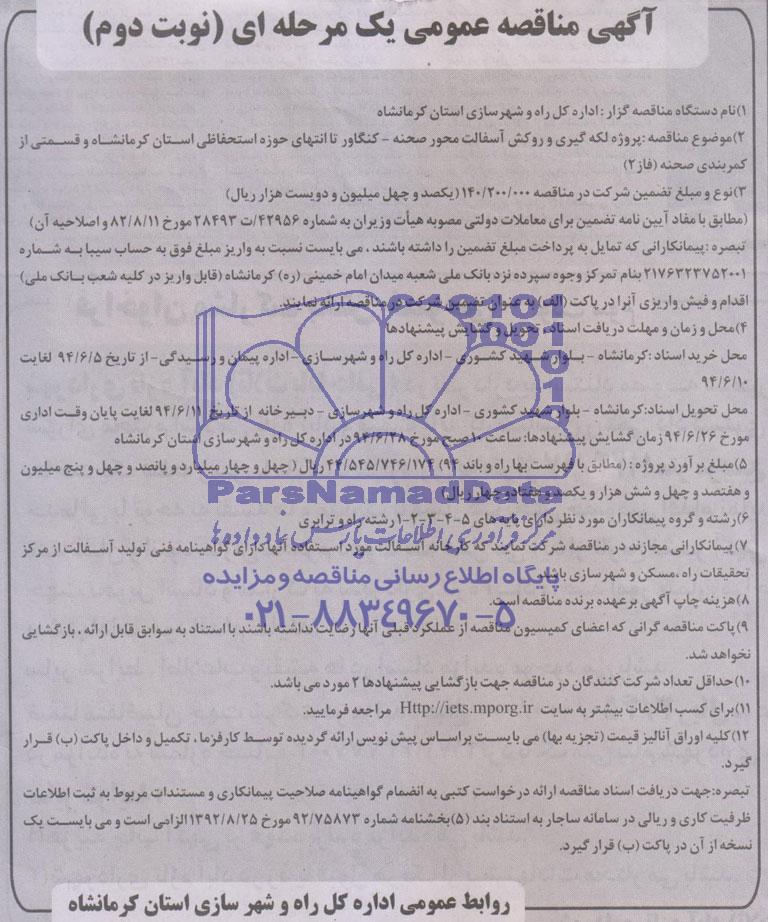 آگهی مناقصه عمومی یک مرحله ای (نوبت دوم)
۱)نام دستگاه مناقصه گزار : اداره کل راه و شهرسازی استان کرمانشاه
۲)موضوع مناقصه :پروژه لکه گیری و روکش آسفالت محور صحنه - کنگاور تا انتهای حوزه استحفاظی استان کرمانشاه و قسمتی از
کمربندی صحنه (فاز۲)
۳)نوع و مبلغ تضمین شرکت در مناقصه ۱۴۰/۲۰۰/۰۰۰ (یکصد و چهل میلیون و دویست هزار ریال)
(مطابق با مفاد آیین نامه تضمین برای معاملات دولتی مصوبه هیأت وزیران به شماره ۴۲۹۵۶/ت ۲۸۴۹۳ مورخ ۸۲/۸/۱۱ و اصلاحیه آن)
تبصره :پیمانکارانی که تمایل به پرداخت مبلغ تضمین را داشته باشند ، می بایست نسبت به واریز مبلغ فوق به حساب سیبا به شماره
۲۱۷۶۳۲۳۷۵۲۰۰۱ بنام تمرکز وجوه سپرده نزد بانک ملی شعبه میدان امام خمینی (ره) کرمانشاه (قابل واریز در کلیه شعب بانک ملی)
اقدام و فیش واریزی آنرا در پاکت (الف) به عنوان تضمین شرکت در مناقصه ارائه نمایند.
۴)محل و زمان و مهلت دریافت اسناد ، تحویل و گشایش پیشنهادها
محل خرید اسناد :کرمانشاه - بلوار شهید کشوری - اداره کل راه و شهرسازی - اداره پیمان و رسیدگی- از تاریخ ۹۴/۶/۵ لغایت
۹۴/۶/۱۰
محل تحویل اسناد:کرمانشاه - بلوار شهید کشوری - اداره کل راه و شهرسازی - دبیرخانه از تاریخ ۹۴/۶/۱۱ لغایت پایان وقت اداری
مورخ ۹۴/۶/۲۶ زمان گشایش پیشنهادها: ساعت ۱۰ صبح مورخ ۹۴/۶/۲۸ در اداره کل راه و شهرسازی استان کرمانشاه
۵)مبلغ برآورد پروژه : (مطابق با فهرست بها راه و باند ۹۴) ۴۴/۵۴۵/۷۴۶/۱۷۴ ریال (چهل و چهار میلیارد و پانصد و چهل و پنج میلیون
و هفتصد و چهل و شش هزار و یکصد و هفتاد و چهار ریال)
۶)رشته و گروه پیمانکاران مورد نظر دارای پایه های ۵-۴-۳-۲-۱ رشته راه و ترابری
۷)پیمانکارانی مجازند در مناقصه شرکت نمایند که کارخانه آسفالت مورد استفاده آنها دارای گواهینامه فنی تولید آسفالت از مرکز
تحقیقات راه ،مسکن و شهرسازی باشد.
۸)هزینه چاپ آگهی بر عهده برنده مناقصه است.
۹)پاکت مناقصه گرانی که اعضای کمیسیون مناقصه از عملکرد قبلی آنها رضایت نداشته باشند با استناد به سوابق قابل ارائه ، بازگشایی
نخواهد شد.
۱۰)حداقل تعداد شرکت کنندگان در مناقصه جهت بازگشایی پیشنهادها ۲ مورد می باشد.
۱۱)برای کسب اطلاعات بیشتر به سایت Http://iets.mporg.ir مراجعه فرمایید.
۱۲)کلیه اوراق آنالیز قیمت (تجزیه بها) می بایست براساس پیش نویس ارائه گردیده توسط کارفرما، تکمیل و داخل پاکت (ب) قرار
گیرد.
تبصره:جهت دریافت اسناد مناقصه ارائه درخواست کتبی به انضمام گواهینامه صلاحیت پیمانکاری و مستندات مربوط به ثبت اطلاعات
ظرفیت کاری و ریالی در سامانه ساجار به استناد بند (۵)بخشنامه شماره ۹۲/۷۵۸۷۳ مورخ ۱۳۹۲/۸/۲۵ الزامی است و می بایست یک
نسخه از آن در پاکت (ب) قرار گیرد.
روابط عمومی اداره کل راه و شهر سازی استان کرمانشاه
ParsNamadData
مرکز فرآوری اطلاعات پارس نماد داده ها
پایگاه اطلاع رسانی مناقصه و مزایده
۰۲۱-۸۸۳۴۹۶۷۰-۵